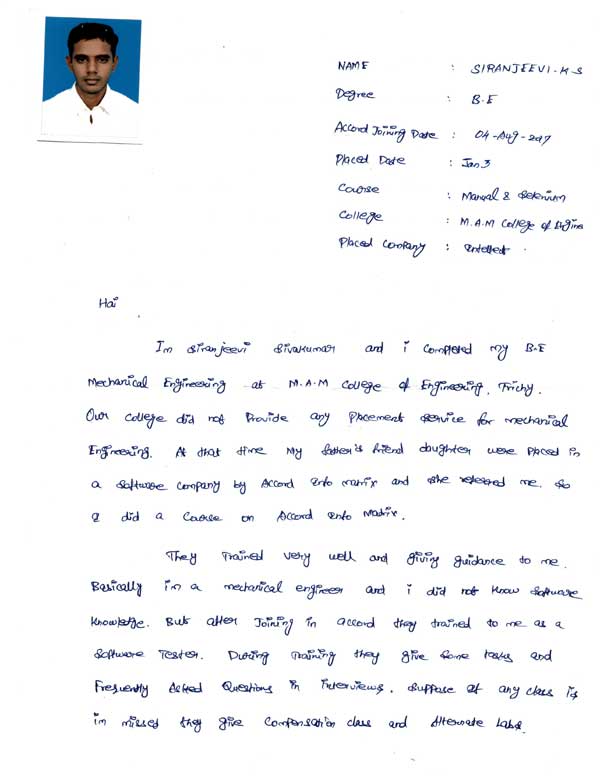 NAME : SIRANJEEVI.K S
Degree : B.E
Accord Joining Date : 04-Aug-2017
Placed Date : Jan 3
Course : Manual & Selenium
College : M.A.M College of Engine
Placed Company : Intellect.
Hai
Im Siranjeevi Sivakumar and i completed my B.E
Mechanical Engineering at M.A.M College of Engineering, Trichy.
Our college did not Provide any Placement service for mechanical
Engineering. At that time My father's friend daughter were placed in
a Software company by Accord Info matrix and she refered me. So
I did a Course on Accord Info Matrix.
They Trained very well and giving guidance to me.
Basically im a mechanical engineer and i did not know Software
Knowledge. But after Joining in accord they trained to me as a
Software Tester. During Training they give Some tasks and
Frequently Asked Questions in interviews. Suppose if any class is
im missed they give Compensation class and Alternate Labs.